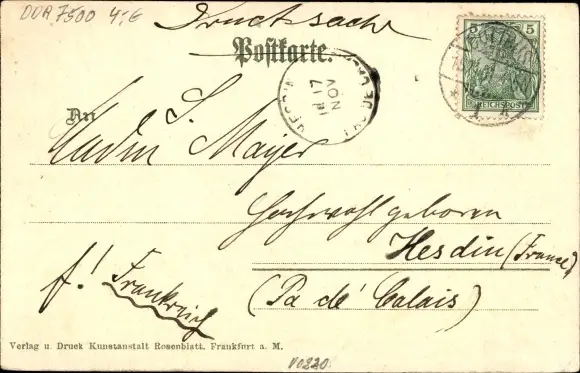 DDA 7500 4,-€
Drucksache
Postkarte.
5 5
REICHSPOST
NOV
17
An
S.
Mayer
Hochwohlgeboren
Hesdin (France)
f.! Frankreich
(Pa de' Calais)
Verlag u. Druck Kunstanstalt Rosenblatt. Frankfurt a. M.
V0220.